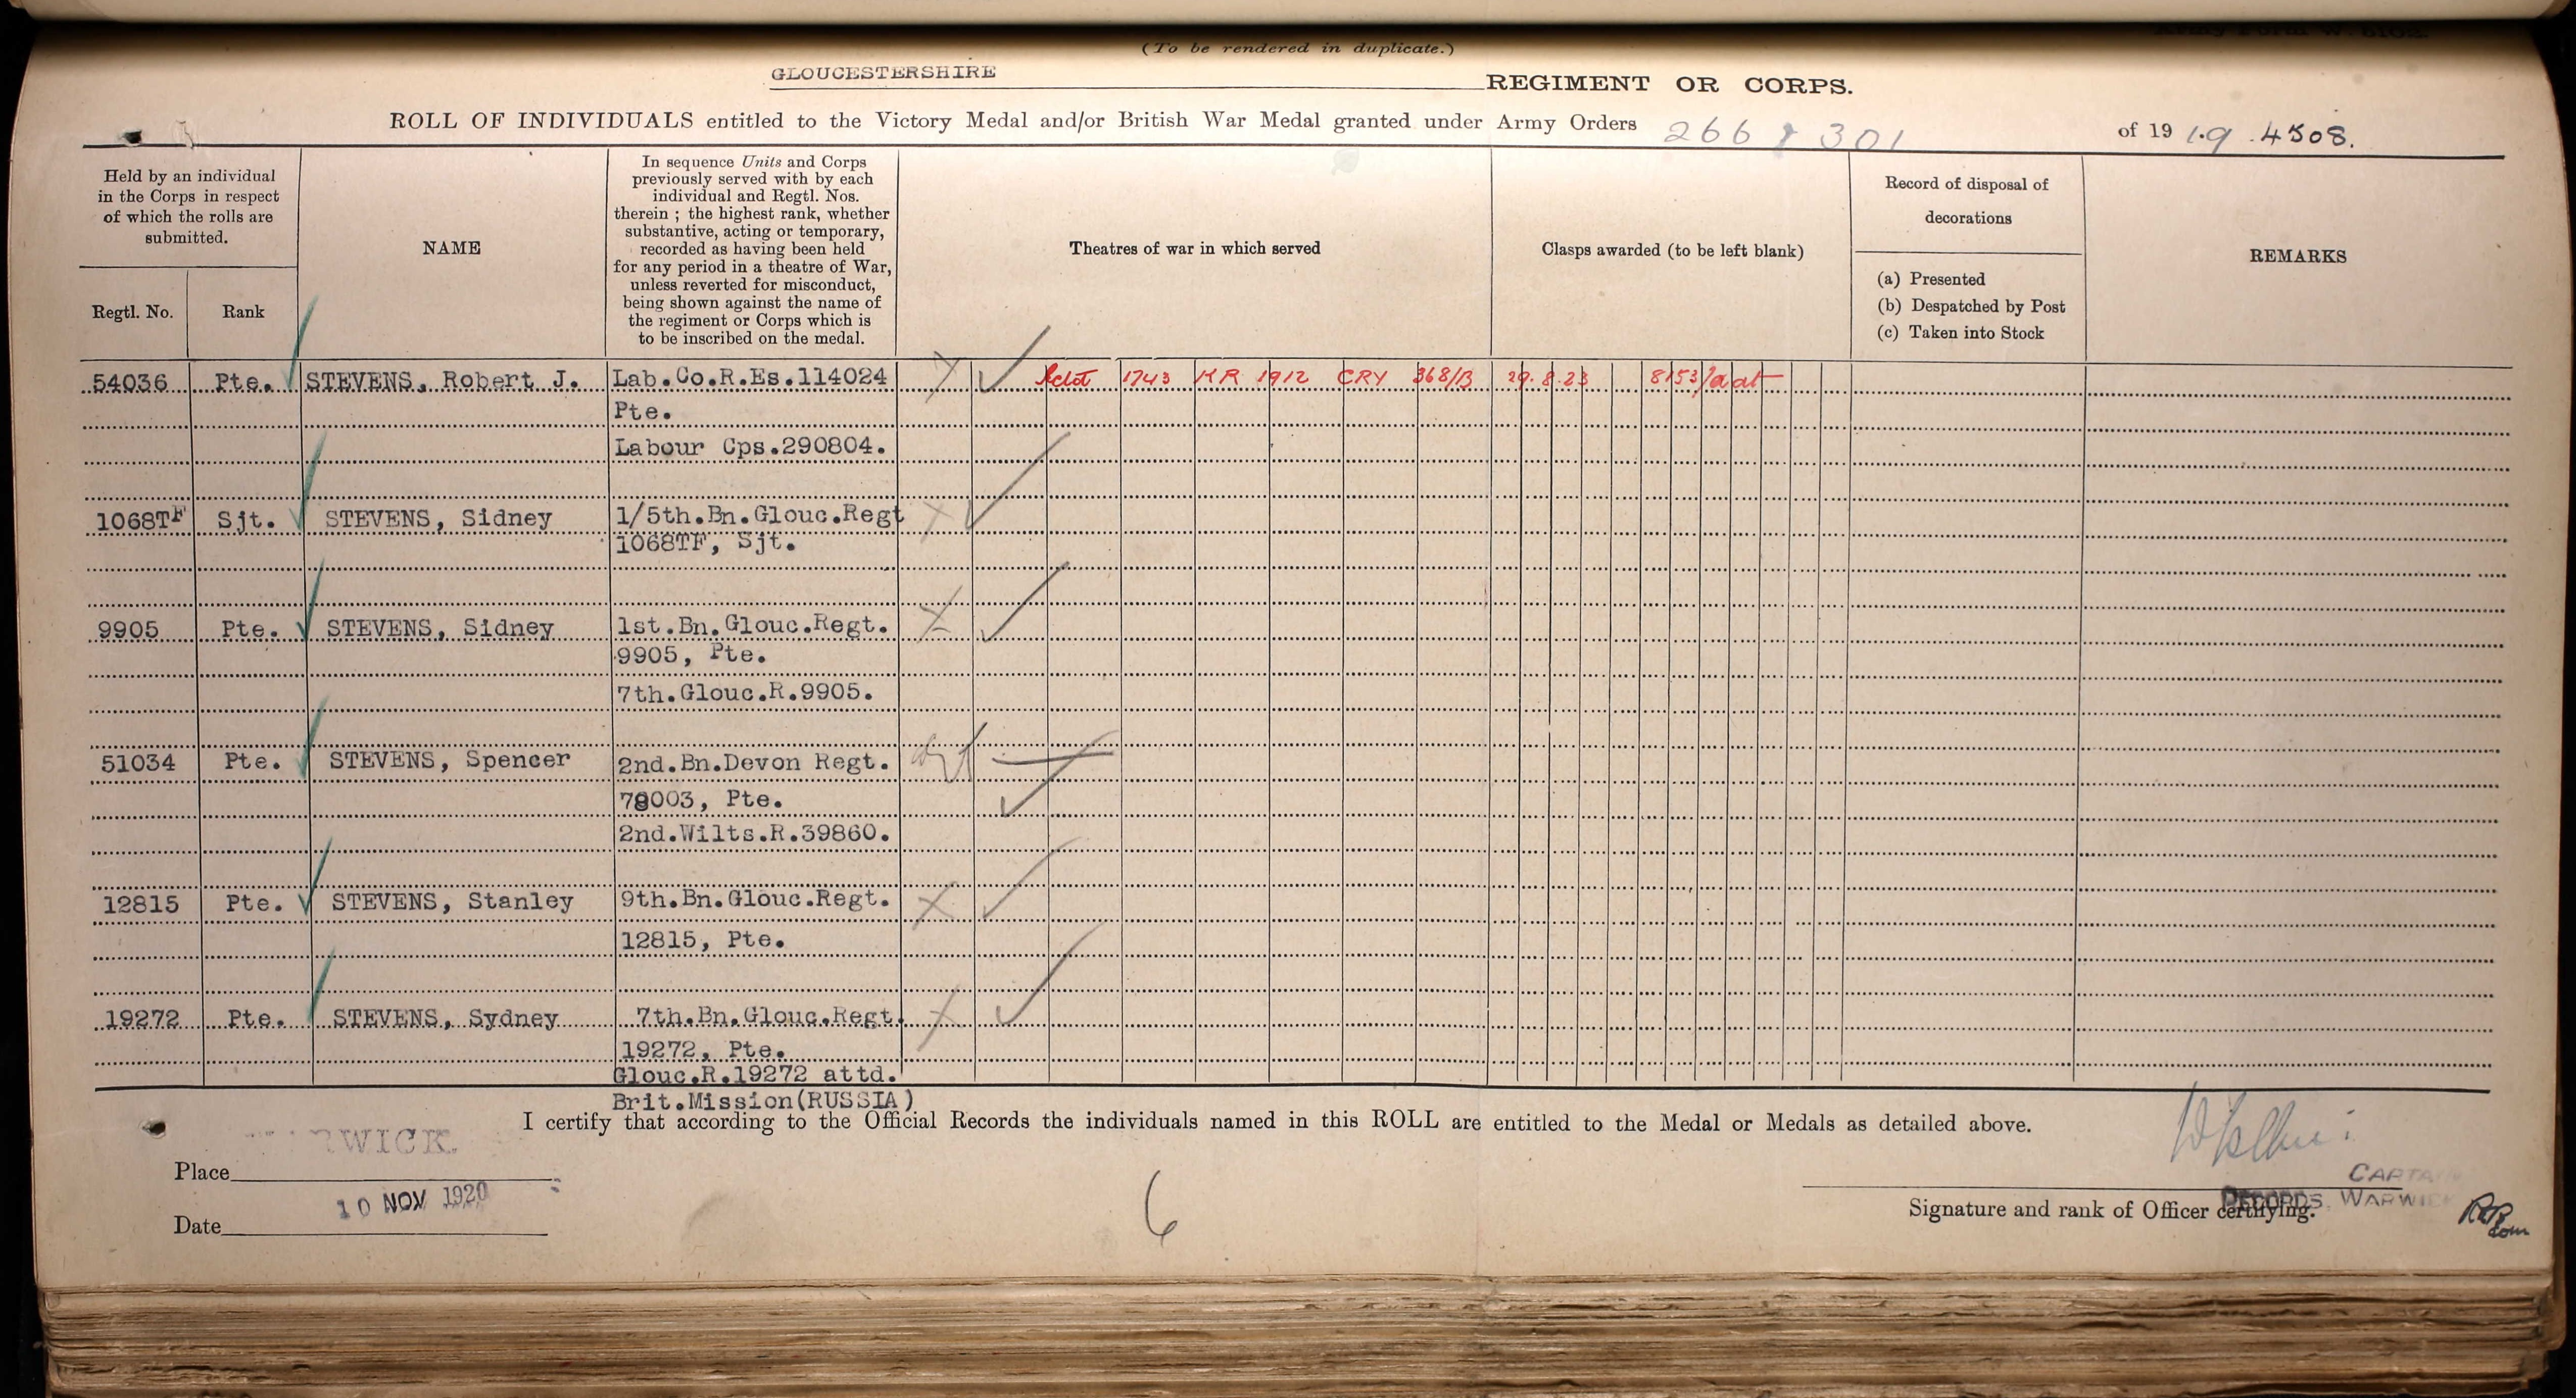 (To be rendered in duplicate.)
GLOUCESTERSHIRE REGIMENT OR CORPS.
ROLL OF INDIVIDUALS entitled to the Victory Medal and/or British War Medal granted under Army Orders 266 & 301 of 19 19. 4508.
Held by an individual in the Corps in respect of which the rolls are submitted.
Regtl. No.
Rank
NAME
In sequence Units and Corps
previously served with by each
individual and Regtl. Nos.
therein ; the highest rank, whether
substantive, acting or temporary,
recorded as having been held
for any period in a theatre of War,
unless reverted for misconduct,
being shown against the name of
the regiment or Corps which is
to be inscribed on the medal.
Theatres of war in which served
Clasps awarded (to be left blank)
Record of disposal of
decorations
(a) Presented
(b) Despatched by Post
(c) Taken into Stock
REMARKS
54036 Pte. STEVENS, Robert J. Lab.Co.R.Es.114024 1743 KR 1912 CRY 368/B 29.8.23
Pte.
Labour Cps.290804.
1068TF Sjt. STEVENS, Sidney 1/5th.Bn.Glouc.Regt
1068TF, Sjt.
9905 Pte. STEVENS, Sidney 1st.Bn.Glouc.Regt.
9905, Pte.
7th.Glouc.R.9905.
51034 Pte. STEVENS, Spencer 2nd.Bn.Devon Regt.
78003, Pte.
2nd.Wilts.R.39860.
12815 Pte. STEVENS, Stanley 9th.Bn.Glouc.Regt.
12815, Pte.
19272 Pte. STEVENS, Sydney 7th.Bn.Glouc.Regt.
19272, Pte.
Glouc.R.19272 attd.
Brit.Mission(RUSSIA)
I certify that according to the Official Records the individuals named in this ROLL are entitled to the Medal or Medals as detailed above.
Place
10 NOV 1920
Date
6
CAPTAIN
RECORDS. WARWICK
Signature and rank of Officer certifying.